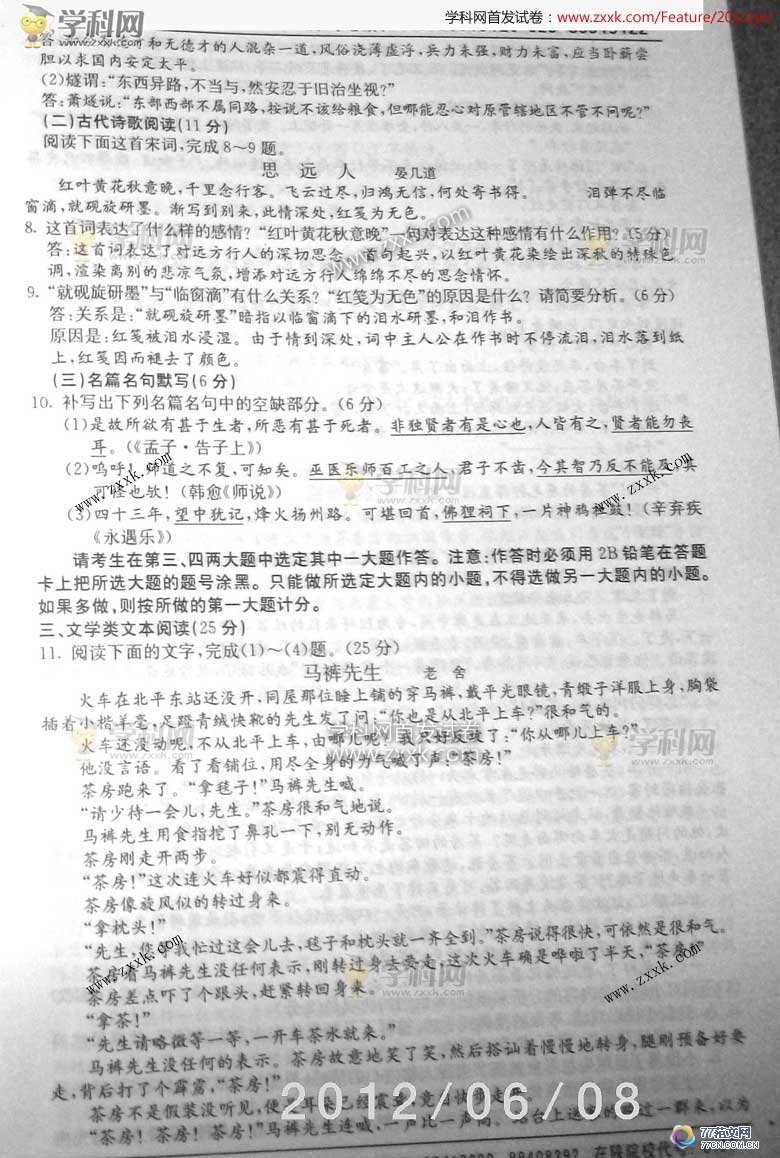 学科网首发试卷：www.zxxk.com/Feature/2012gk/
答 和无德才的人混杂一道，风俗浇薄虚浮，兵力未强，财力未富，应当卧薪尝
胆以求国内安定太平。
(2)燧谓:“东西异路，不当与，然安忍于旧治坐视?”
答:萧燧说:“东部西部不属同路，按说不该给粮食，但哪能忍心对原管辖地区不管不问呢?”
(二)古代诗歌阅读(11分)
阅读下面这首宋词，完成8～9题。
思 远 人 晏几道
红叶黄花秋意晚，千里念行客。飞云过尽，归鸿无信，何处寄书得。 泪弹不尽临
窗滴，就砚旋研墨。渐写到别来，此情深处，红笺为无色。
8. 这首词表达了什么样的感情?“红叶黄花秋意晚”一句对表达这种感情有什么作用?(5分)
答:这首词表达了对远方行人的深切思念。首句起兴，以红叶黄花染绘出深秋的特殊色
调，渲染离别的悲凉气氛，增添对远方行人绵绵不尽的思念情怀。
9. “就砚旋研墨”与“临窗滴”有什么关系?“红笺为无色”的原因是什么?请简要分析。(6分)
答:关系是:“就砚旋研墨”暗指以临窗滴下的泪水研墨，和泪作书。
原因是:红笺被泪水浸湿。由于情到深处，词中主人公在作书时不停流泪，泪水落到纸
上，红笺因而褪去了颜色。
(三)名篇名句默写(6分)
10. 补写出下列名篇名句中的空缺部分。(6分)
(1)是故所欲有甚于生者，所恶有甚于死者。非独贤者有是心也，人皆有之，贤者能勿丧
耳。(《孟子·告子上》)
(2)呜呼!师道之不复，可知矣。巫医乐师百工之人，君子不齿，今其智乃反不能及，其
可怪也欤!(韩愈《师说》)
(3)四十三年，望中犹记，烽火扬州路。可堪回首，佛狸祠下，一片神鸦社鼓!(辛弃疾
《永遇乐》)
请考生在第三、四两大题中选定其中一大题作答。注意:作答时必须用2B铅笔在答题
卡上把所选大题的题号涂黑。只能做所选定大题内的小题，不得选做另一大题内的小题。
如果多做，则按所做的第一大题计分。
三、文学类文本阅读(25分)
11. 阅读下面的文字，完成(1)～(4)题。(25分)
马裤先生 老 舍
火车在北平东站还没开，同屋那位睡上铺的穿马裤，戴平光眼镜，青缎子洋服上身，胸袋
插着小楷羊毫，足蹬青绒快靴的先生发了问:“你也是从北平上车?”很和气的。
火车还没动呢，不从北平上车，由哪儿呢?我只好反攻了:“你从哪儿上车?”
他没言语。看了看铺位，用尽全身的力气喊了声:“茶房!”
茶房跑来了。“拿毯子!”马裤先生喊。
“请少待一会儿，先生。”茶房很和气地说。
马裤先生用食指挖了鼻孔一下，别无动作。
茶房刚走开两步。
“茶房!”这次连火车好似都震得直动。
茶房像旋风似的转过身来。
“拿枕头!”
“先生，您等我忙过这会儿去，毯子和枕头就一齐全到。”茶房说得很快，可依然是很和气。
茶房看马裤先生没任何表示，刚转过身去要走，这次火车确是哗啦了半天，“茶房!”
茶房差点吓了个跟头，赶紧转回身来。
“拿茶!”
“先生请略微等一等，一开车茶水就来。”
马裤先生没任何的表示。茶房故意地笑了笑，然后搭讪着慢慢地转身，腿刚预备好要
走，背后打了个霹雳，“茶房!”
茶房不是假装没听见，便是耳朵已经震聋，竟自快步走
“茶房!茶房!茶房!”马裤先生连喊，一声比一声高。站台上送客的跑过一群来，以为
2012/06/08
77范文网
www.zxxk.com
学科网